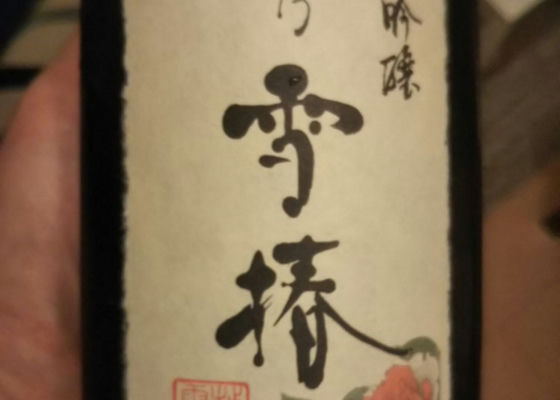 吟醸
乃
雪椿